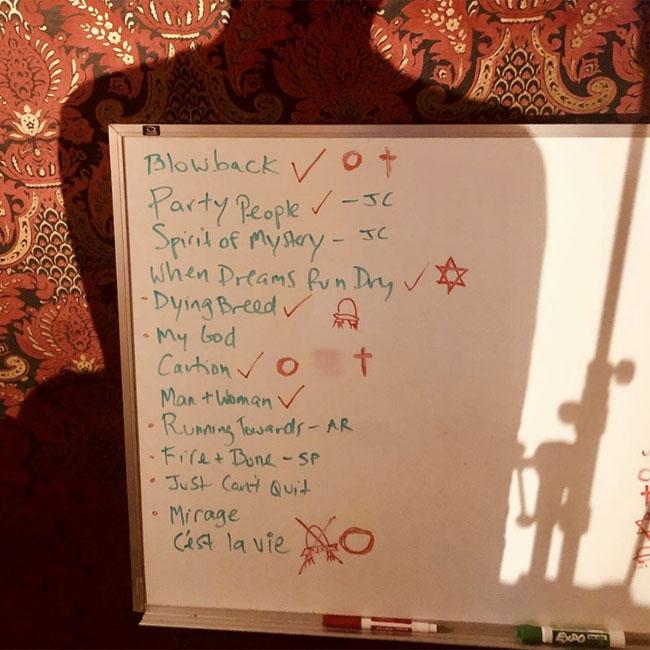 Blowback ✓ O †
Party People ✓ - JC
Spirit of Mystery - JC
When Dreams Run Dry ✓ ✡
• Dying Breed ✓
• My God
Caution ✓ O †
Man + Woman ✓
• Running Towards - AR
• Fire + Bone - SP
• Just Can't Quit
• Mirage
C'est la vie O
EXPO